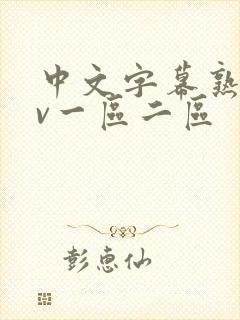 中文字幕熟
v一區二區
彭惠仙